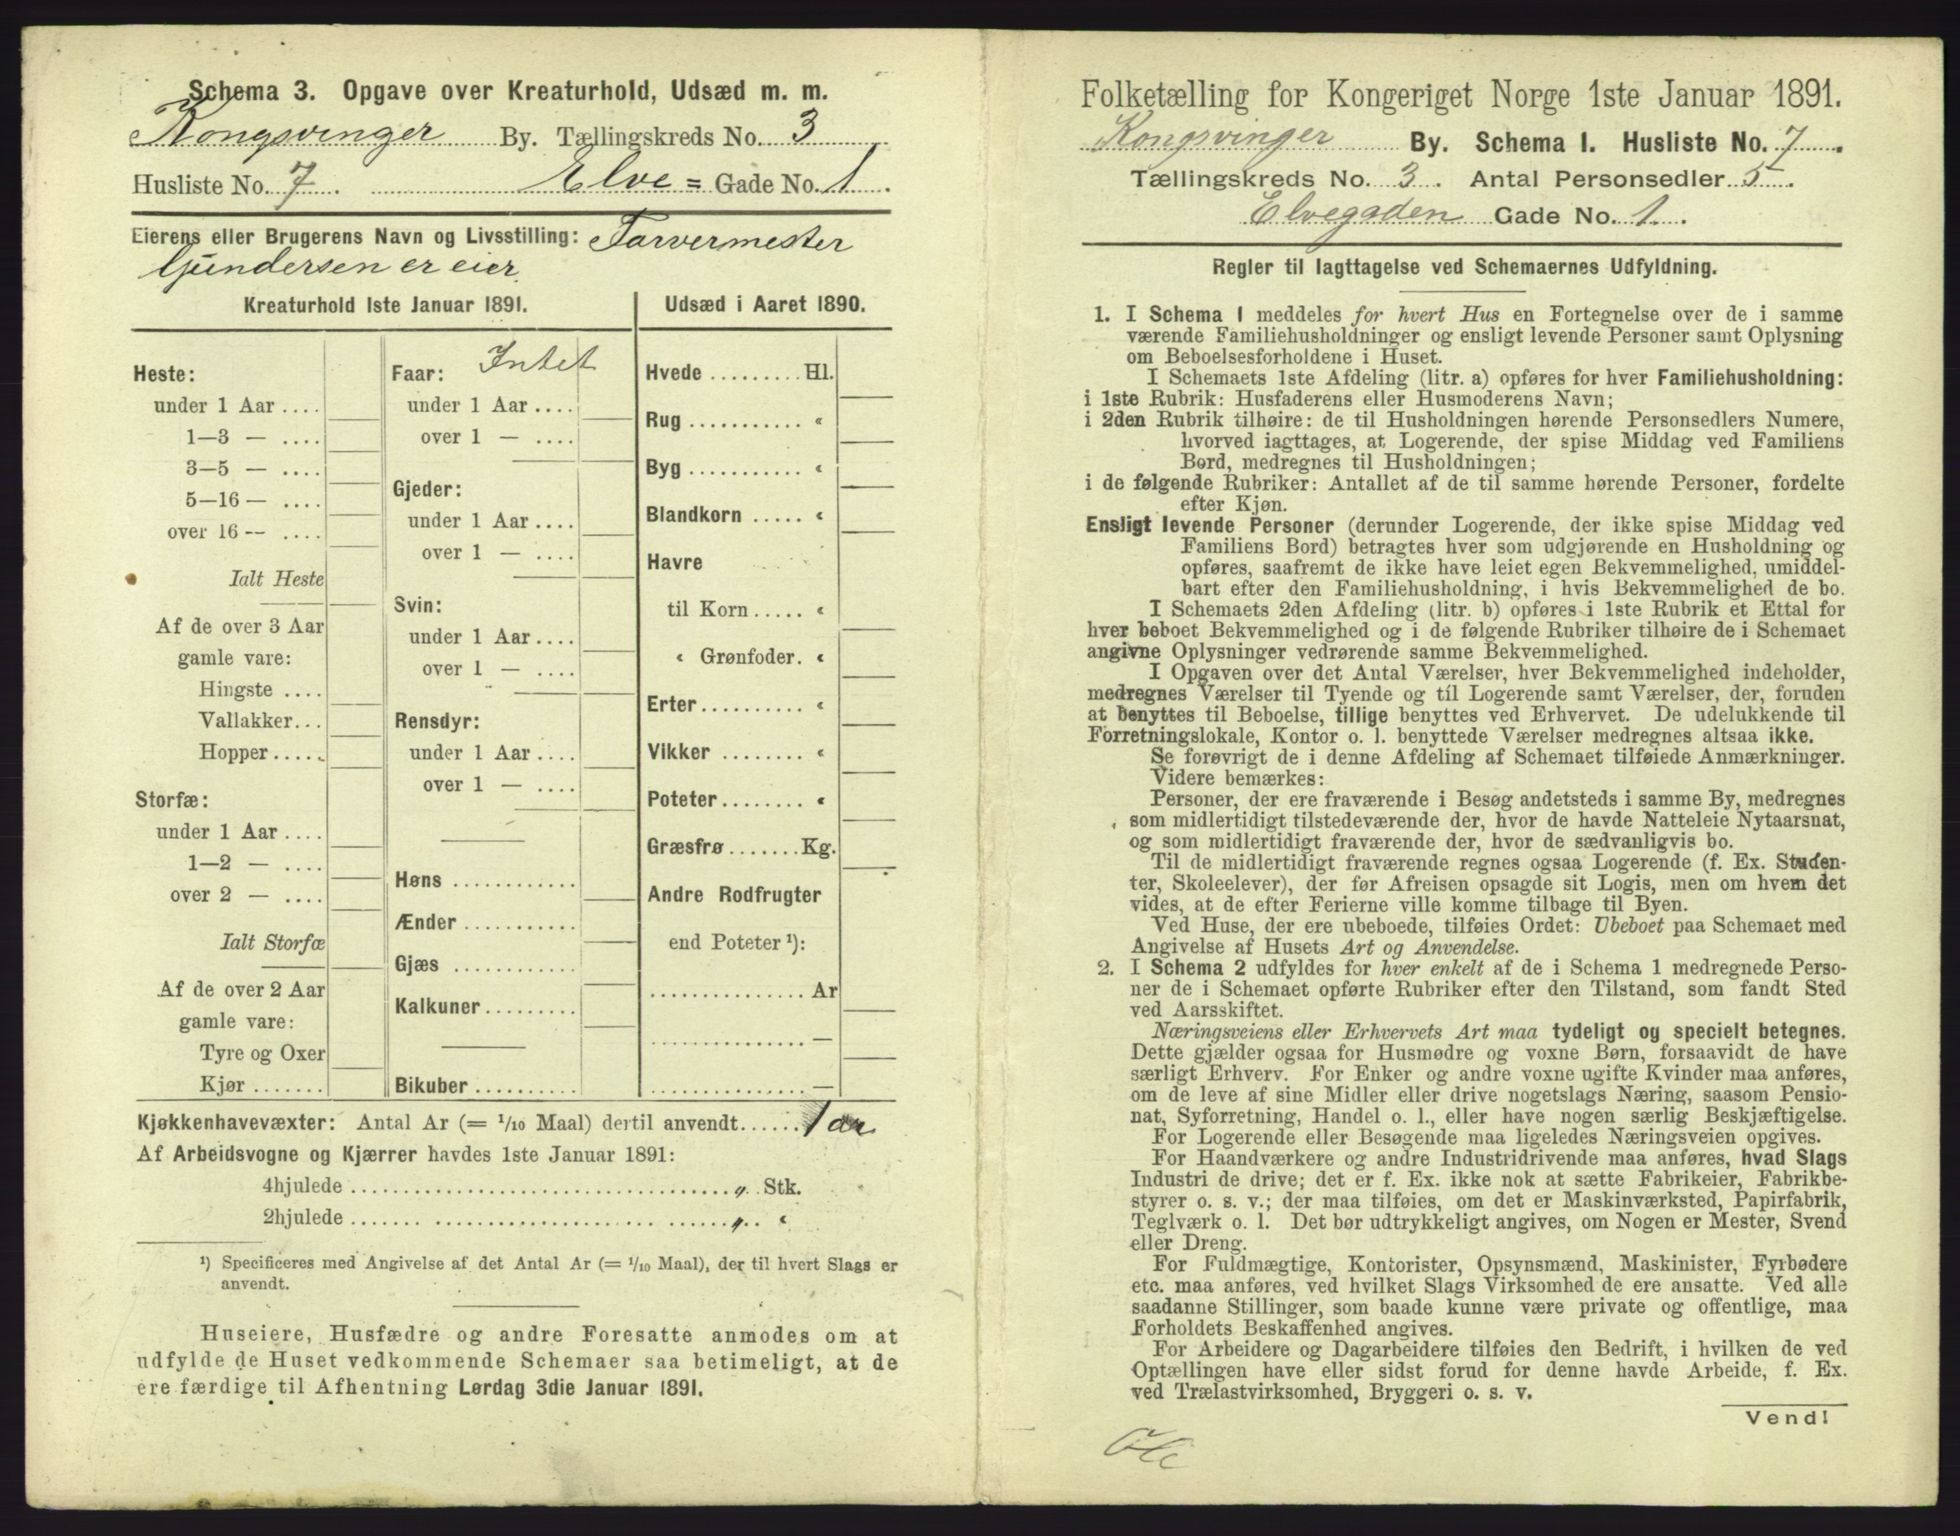 Schema 3. Opgave over Kreaturhold, Udsæd m. m.
Kongsvinger By. Tællingskreds No. 3
Husliste No. 7. Elve= Gade No. 1.
Eierens eller Brugerens Navn og Livsstilling: Farvermester
Gundersen er eier
Kreaturhold 1ste Januar 1891.
Heste:
under 1 Aar ....
1—3 — ....
3—5 — ....
5—16 — ....
over 16 — ....
Ialt Heste
Af de over 3 Aar
gamle vare:
Hingste ....
Vallakker...
Hopper.....
Storfæ:
under 1 Aar ....
1—2 — ....
over 2 — ....
Ialt Storfæ
Af de over 2 Aar
gamle vare:
Tyre og Oxer
Kjør .......
Faar: Intet
under 1 Aar ....
over 1 — ....
Gjeder:
under 1 Aar ....
over 1 — ....
Svin:
under 1 Aar ....
over 1 — ....
Rensdyr:
under 1 Aar ....
over 1 — ....
Høns ............
Ænder ...........
Gjæs ............
Kalkuner.........
Bikuber ..........
Udsæd i Aaret 1890.
Hvede ......... Hl.
Rug ........... «
Byg ........... «
Blandkorn ..... «
Havre
til Korn ..... «
« Grønfoder. «
Erter.......... «
Vikker ........ «
Poteter........ «
Græsfrø ....... Kg.
Andre Rodfrugter
end Poteter ¹):
............... Ar
............... —
............... —
Kjøkkenhavevæxter: Antal Ar (= 1/10 Maal) dertil anvendt...... 1 ar
Af Arbeidsvogne og Kjærrer havdes 1ste Januar 1891:
4hjulede .................................... " Stk.
2hjulede .................................... " «
¹) Specificeres med Angivelse af det Antal Ar (= 1/10 Maal), der til hvert Slags er
anvendt.
Huseiere, Husfædre og andre Foresatte anmodes om at
udfylde de Huset vedkommende Schemaer saa betimeligt, at de
ere færdige til Afhentning Lørdag 3die Januar 1891.
Folketælling for Kongeriget Norge 1ste Januar 1891.
Kongsvinger By. Schema I. Husliste No. 7.
Tællingskreds No. 3. Antal Personsedler 5.
Elvegaden Gade No. 1.
Regler til Iagttagelse ved Schemaernes Udfyldning.
1. I Schema 1 meddeles for hvert Hus en Fortegnelse over de i samme
værende Familiehusholdninger og ensligt levende Personer samt Oplysning
om Beboelsesforholdene i Huset.
I Schemaets 1ste Afdeling (litr. a) opføres for hver Familiehusholdning:
i 1ste Rubrik: Husfaderens eller Husmoderens Navn;
i 2den Rubrik tilhøire: de til Husholdningen hørende Personsedlers Numere,
hvorved iagttages, at Logerende, der spise Middag ved Familiens
Bord, medregnes til Husholdningen;
i de følgende Rubriker: Antallet af de til samme hørende Personer, fordelte
efter Kjøn.
Ensligt levende Personer (derunder Logerende, der ikke spise Middag ved
Familiens Bord) betragtes hver som udgjørende en Husholdning og
opføres, saafremt de ikke have leiet egen Bekvemmelighed, umiddel-
bart efter den Familiehusholdning, i hvis Bekvemmelighed de bo.
I Schemaets 2den Afdeling (litr. b) opføres i 1ste Rubrik et Ettal for
hver beboet Bekvemmelighed og i de følgende Rubriker tilhøire de i Schemaet
angivne Oplysninger vedrørende samme Bekvemmelighed.
I Opgaven over det Antal Værelser, hver Bekvemmelighed indeholder,
medregnes Værelser til Tyende og til Logerende samt Værelser, der, foruden
at benyttes til Beboelse, tillige benyttes ved Erhvervet. De udelukkende til
Forretningslokale, Kontor o. l. benyttede Værelser medregnes altsaa ikke.
Se forøvrigt de i denne Afdeling af Schemaet tilføiede Anmærkninger.
Videre bemærkes:
Personer, der ere fraværende i Besøg andetsteds i samme By, medregnes
som midlertidigt tilstedeværende der, hvor de havde Natteleie Nytaarsnat,
og som midlertidigt fraværende der, hvor de sædvanligvis bo.
Til de midlertidigt fraværende regnes ogsaa Logerende (f. Ex. Studen-
ter, Skoleelever), der før Afreisen opsagde sit Logis, men om hvem det
vides, at de efter Ferierne ville komme tilbage til Byen.
Ved Huse, der ere ubeboede, tilføies Ordet: Ubeboet paa Schemaet med
Angivelse af Husets Art og Anvendelse.
2. I Schema 2 udfyldes for hver enkelt af de i Schema 1 medregnede Perso-
ner de i Schemaet opførte Rubriker efter den Tilstand, som fandt Sted
ved Aarsskiftet.
Næringsveiens eller Erhvervets Art maa tydeligt og specielt betegnes.
Dette gjælder ogsaa for Husmødre og voxne Børn, forsaavidt de have
særligt Erhverv. For Enker og andre voxne ugifte Kvinder maa anføres,
om de leve af sine Midler eller drive nogetslags Næring, saasom Pensio-
nat, Syforretning, Handel o. l., eller have nogen særlig Beskjæftigelse.
For Logerende eller Besøgende maa ligeledes Næringsveien opgives.
For Haandværkere og andre Industridrivende maa anføres, hvad Slags
Industri de drive; det er f. Ex. ikke nok at sætte Fabrikeier, Fabrikbe-
styrer o. s. v.; der maa tilføies, om det er Maskinværksted, Papirfabrik,
Teglværk o. l. Det bør udtrykkeligt angives, om Nogen er Mester, Svend
eller Dreng.
For Fuldmægtige, Kontorister, Opsynsmænd, Maskinister, Fyrbødere
etc. maa anføres, ved hvilket Slags Virksomhed de ere ansatte. Ved alle
saadanne Stillinger, som baade kunne være private og offentlige, maa
Forholdets Beskaffenhed angives.
For Arbeidere og Dagarbeidere tilføies den Bedrift, i hvilken de ved
Optællingen have eller sidst forud for denne havde Arbeide, f. Ex.
ved Trælastvirksomhed, Bryggeri o. s. v.
Vend!